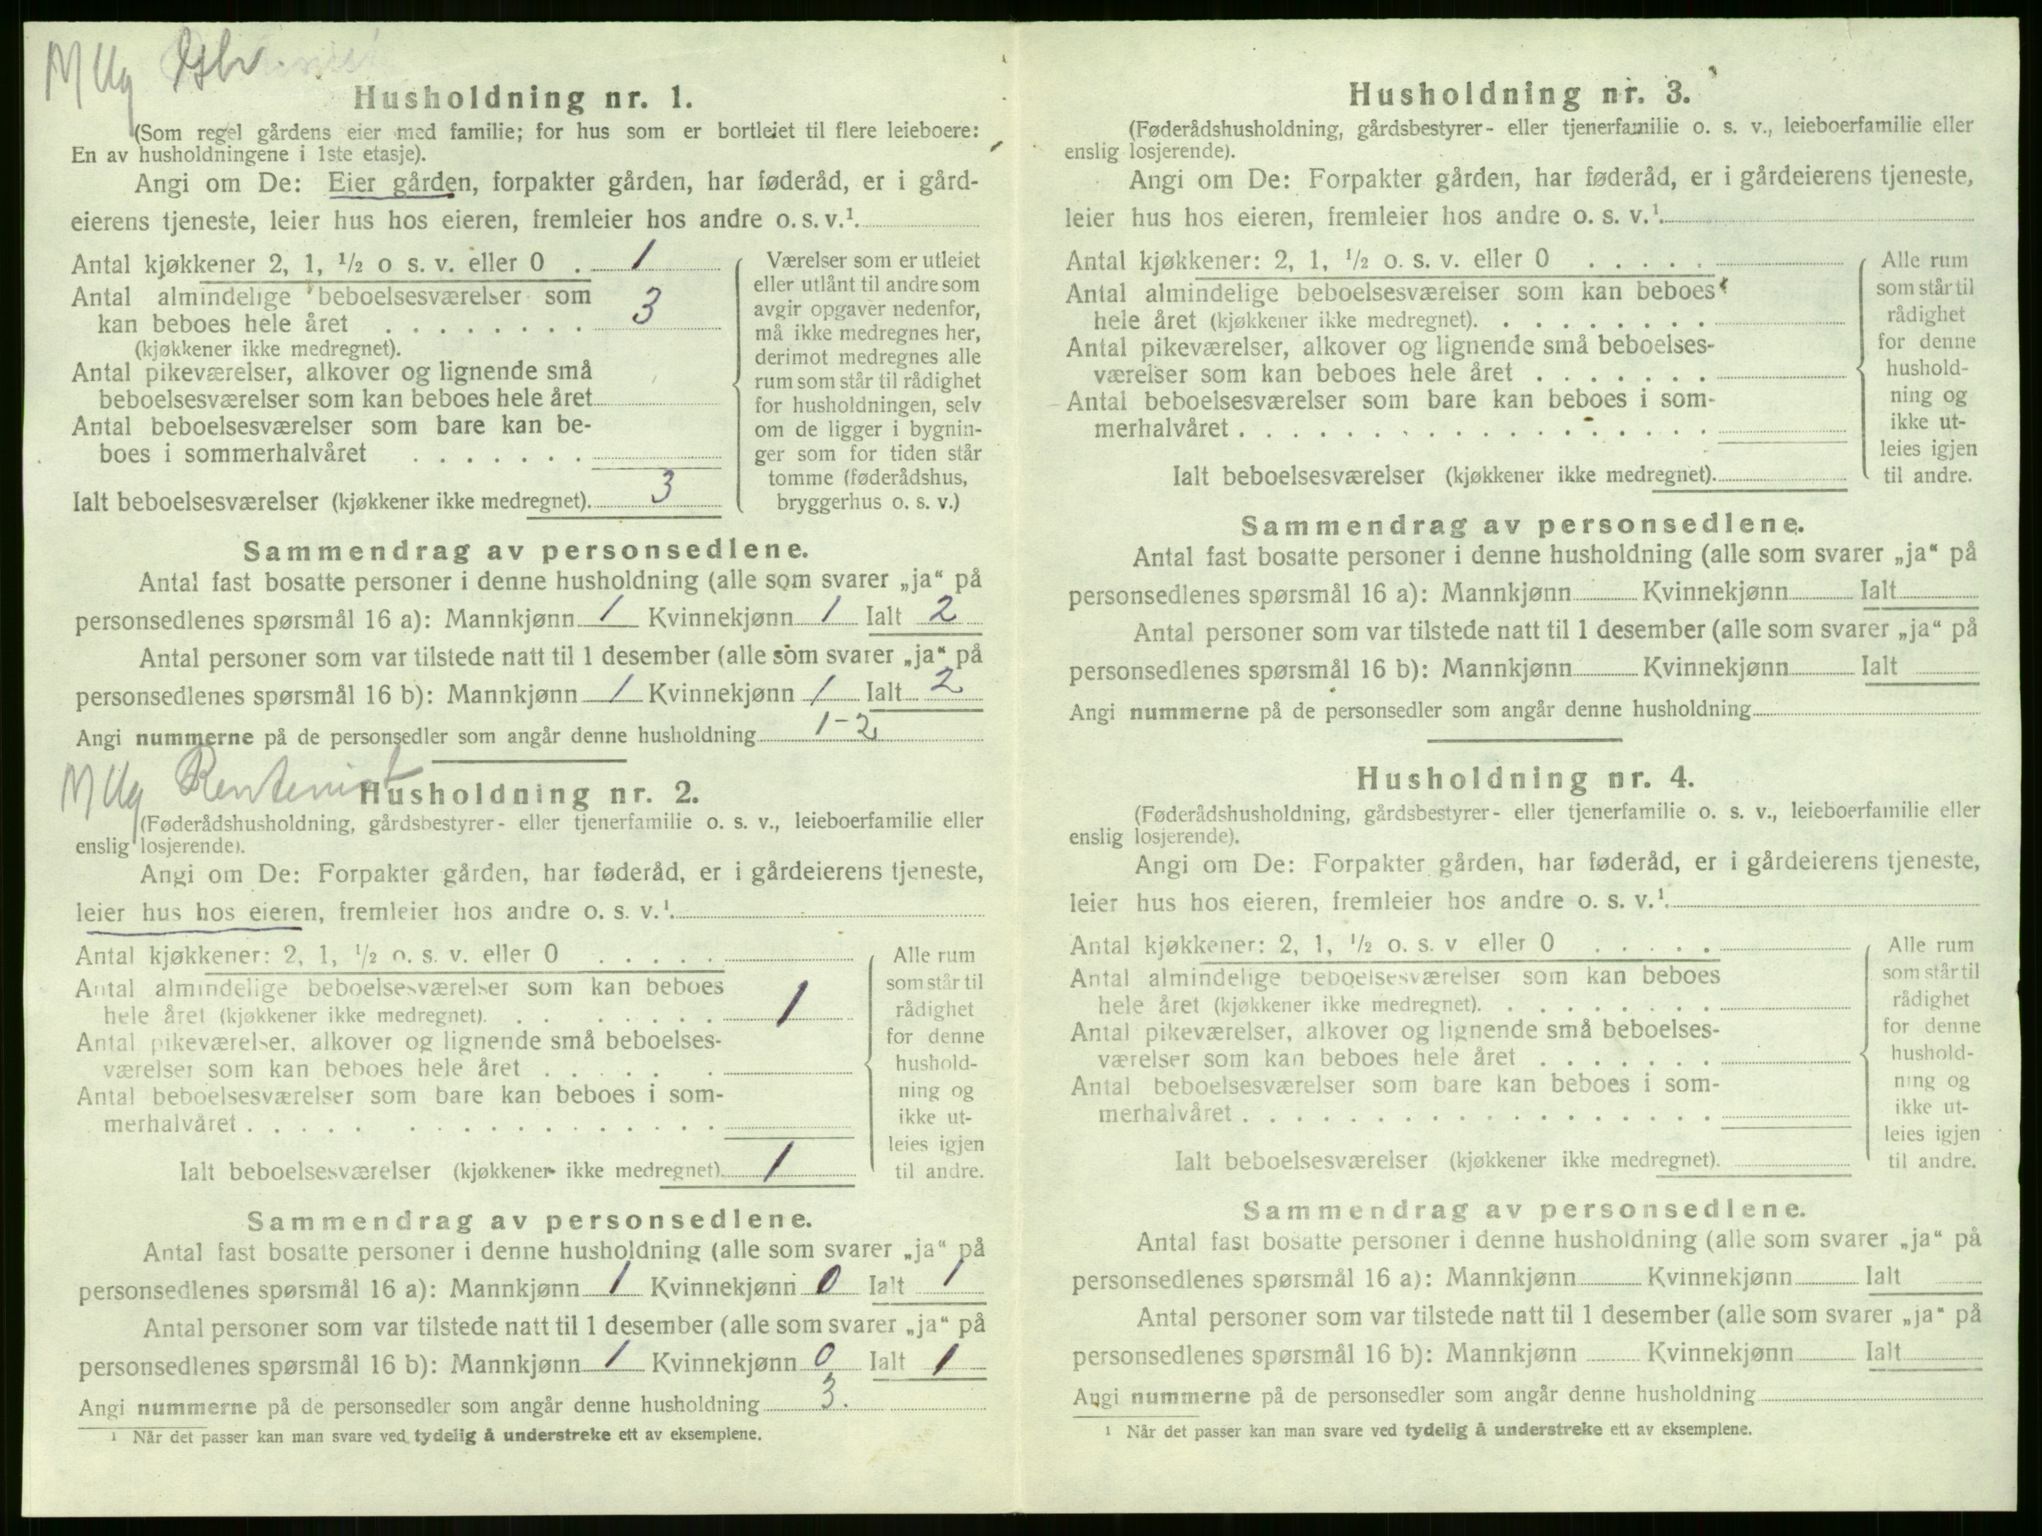 Husholdning nr. 1.
(Som regel gårdens eier med familie; for hus som er bortleiet til flere leieboere:
En av husholdningene i 1ste etasje).
Angi om De: Eier gården, forpakter gården, har føderåd, er i gård-
eierens tjeneste, leier hus hos eieren, fremleier hos andre o. s. v.¹.
Antal kjøkkener 2, 1, ½ o s. v. eller 0 . 1
Antal almindelige beboelsesværelser som
kan beboes hele året . . . . . . . . 3
(kjøkkener ikke medregnet).
Antal pikeværelser, alkover og lignende små
beboelsesværelser som kan beboes hele året
Antal beboelsesværelser som bare kan be-
boes i sommerhalvåret . . . . . . .
Ialt beboelsesværelser (kjøkkener ikke medregnet). 3
Værelser som er utleiet
eller utlånt til andre som
avgir opgaver nedenfor,
må ikke medregnes her,
derimot medregnes alle
rum som står til rådighet
for husholdningen, selv
om de ligger i bygnin-
ger som for tiden står
tomme (føderådshus,
bryggerhus o. s. v.)
Sammendrag av personsedlene.
Antal fast bosatte personer i denne husholdning (alle som svarer „ja“ på
personsedlenes spørsmål 16 a): Mannkjønn 1 Kvinnekjønn 1 Ialt 2
Antal personer som var tilstede natt til 1 desember (alle som svarer „ja“ på
personsedlenes spørsmål 16 b): Mannkjønn 1 Kvinnekjønn 1 Ialt 2
Angi nummerne på de personsedler som angår denne husholdning 1-2
Rentenist
Husholdning nr. 2.
(Føderådshusholdning, gårdsbestyrer- eller tjenerfamilie o. s. v., leieboerfamilie eller
enslig losjerende).
Angi om De: Forpakter gården, har føderåd, er i gårdeierens tjeneste,
leier hus hos eieren, fremleier hos andre o. s. v.¹.
Antal kjøkkener: 2, 1, ½ o. s. v. eller 0 . . . . .
Antal almindelige beboelsesværelser som kan beboes
hele året (kjøkkener ikke medregnet). . . . . . . . 1
Antal pikeværelser, alkover og lignende små beboelses-
værelser som kan beboes hele året . . . . . .
Antal beboelsesværelser som bare kan beboes i som-
merhalvåret . . . . . . . . . . . . . . . . .
Ialt beboelsesværelser (kjøkkener ikke medregnet). 1
Alle rum
som står til
rådighet
for denne
hushold-
ning og
ikke ut-
leies igjen
til andre.
Sammendrag av personsedlene.
Antal fast bosatte personer i denne husholdning (alle som svarer „ja“ på
personsedlenes spørsmål 16 a): Mannkjønn 1 Kvinnekjønn 0 Ialt 1
Antal personer som var tilstede natt til 1 desember (alle som svarer „ja“ på
personsedlenes spørsmål 16 b): Mannkjønn 1 Kvinnekjønn 0 Ialt 1
Angi nummerne på de personsedler som angår denne husholdning 3.
¹ Når det passer kan man svare ved tydelig å understreke ett av eksemplene.
Husholdning nr. 3.
(Føderådshusholdning, gårdsbestyrer- eller tjenerfamilie o. s. v., leieboerfamilie eller
enslig losjerende).
Angi om De: Forpakter gården, har føderåd, er i gårdeierens tjeneste,
leier hus hos eieren, fremleier hos andre o. s. v.¹.
Antal kjøkkener: 2, 1, ½ o. s. v. eller 0 . . . . .
Antal almindelige beboelsesværelser som kan beboes
hele året (kjøkkener ikke medregnet). . . . . . . . .
Antal pikeværelser, alkover og lignende små beboelses-
værelser som kan beboes hele året . . . . . . .
Antal beboelsesværelser som bare kan beboes i som-
merhalvåret . . . . . . . . . . . . . . . . . .
Ialt beboelsesværelser (kjøkkener ikke medregnet).
Alle rum
som står til
rådighet
for denne
hushold-
ning og
ikke ut-
leies igjen
til andre.
Sammendrag av personsedlene.
Antal fast bosatte personer i denne husholdning (alle som svarer „ja“ på
personsedlenes spørsmål 16 a): Mannkjønn Kvinnekjønn Ialt
Antal personer som var tilstede natt til 1 desember (alle som svarer „ja“ på
personsedlenes spørsmål 16 b): Mannkjønn Kvinnekjønn Ialt
Angi nummerne på de personsedler som angår denne husholdning
Husholdning nr. 4.
(Føderådshusholdning, gårdsbestyrer- eller tjenerfamilie o. s. v., leieboerfamilie eller
enslig losjerende).
Angi om De: Forpakter gården, har føderåd, er i gårdeierens tjeneste,
leier hus hos eieren, fremleier hos andre o. s. v.¹.
Antal kjøkkener: 2, 1, ½ o. s. v eller 0 . . . . .
Antal almindelige beboelsesværelser som kan beboes
hele året (kjøkkener ikke medregnet). . . . . . . . .
Antal pikeværelser, alkover og lignende små beboelses-
værelser som kan beboes hele året . . . . . . .
Antal beboelsesværelser som bare kan beboes i som-
merhalvåret . . . . . . . . . . . . . . . . . .
Ialt beboelsesværelser (kjøkkener ikke medregnet).
Alle rum
som står til
rådighet
for denne
hushold-
ning og
ikke ut-
leies igjen
til andre.
Sammendrag av personsedlene.
Antal fast bosatte personer i denne husholdning (alle som svarer „ja“ på
personsedlenes spørsmål 16 a): Mannkjønn Kvinnekjønn Ialt
Antal personer som var tilstede natt til 1 desember (alle som svarer „ja“ på
personsedlenes spørsmål 16 b): Mannkjønn Kvinnekjønn Ialt
Angi nummerne på de personsedler som angår denne husholdning
¹ Når det passer kan man svare ved tydelig å understreke ett av eksemplene.